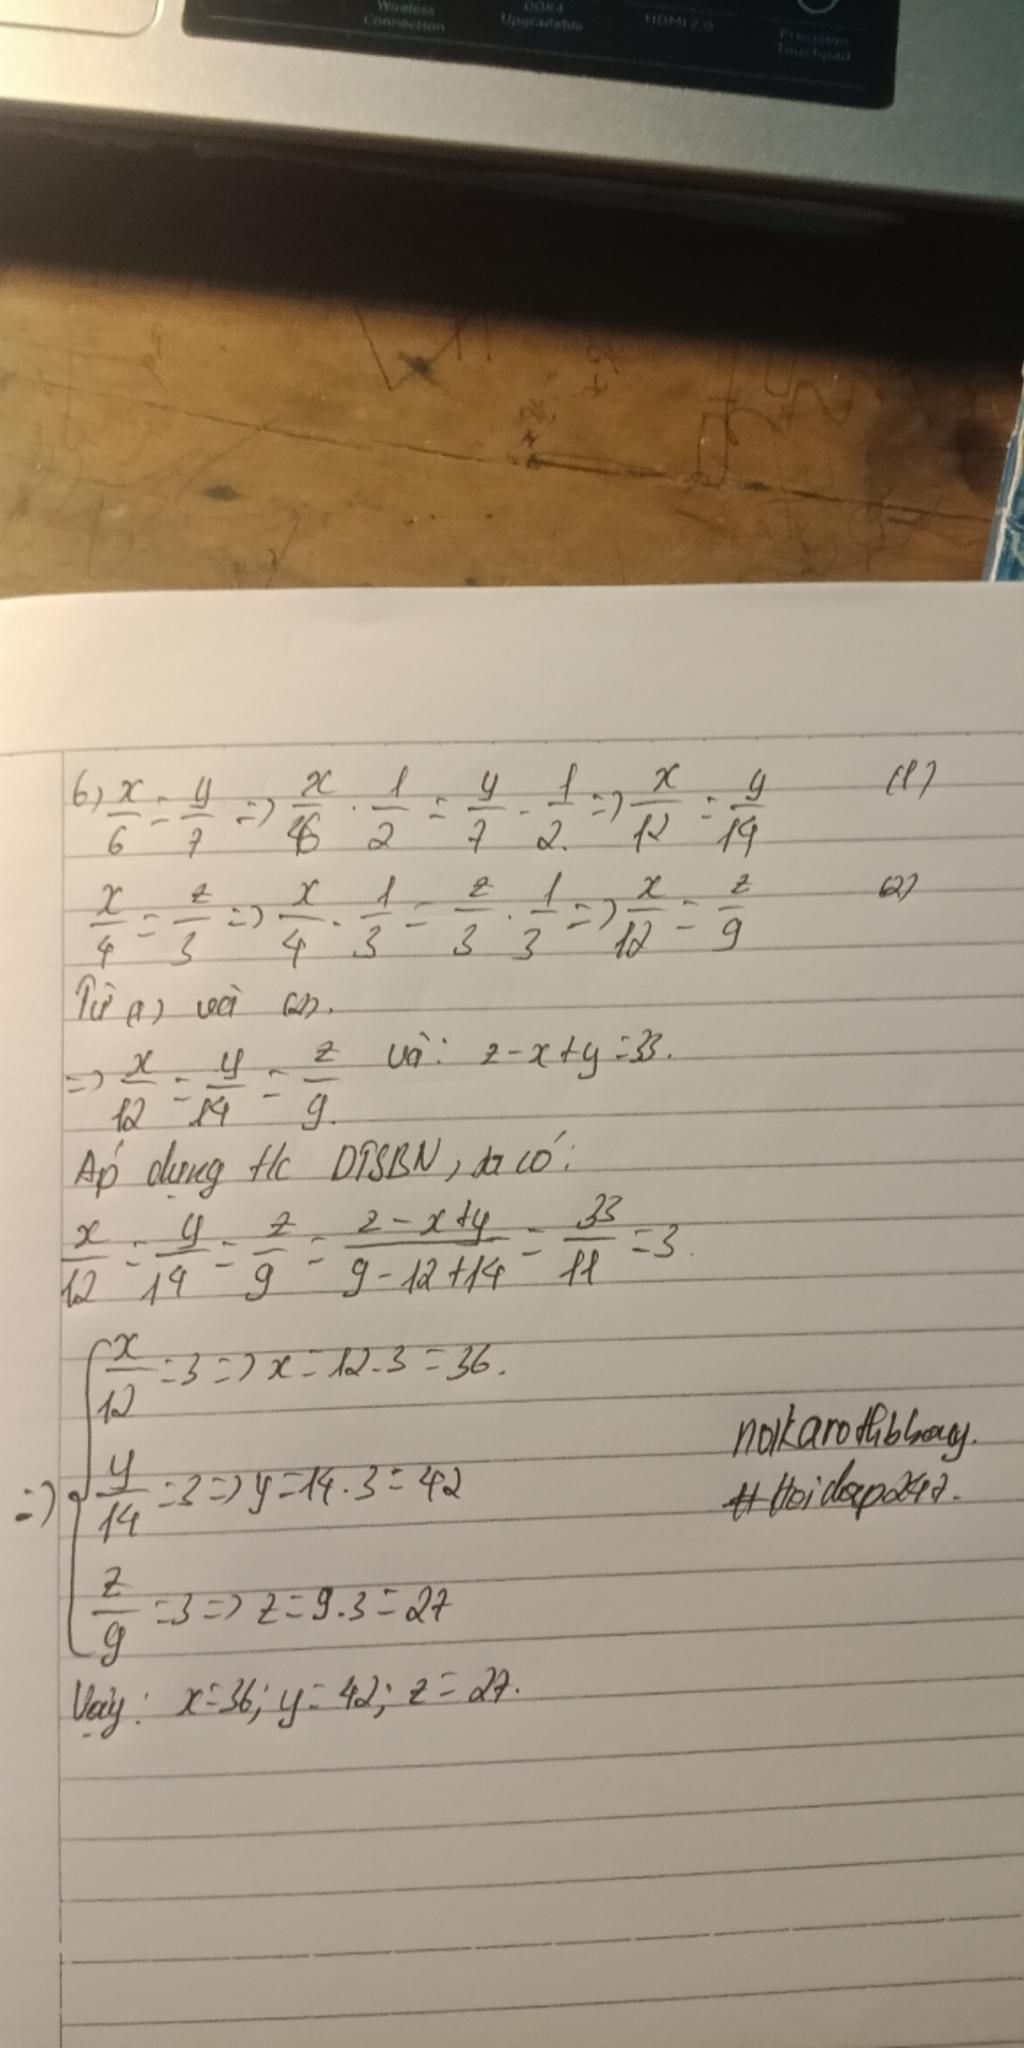 Wireless Connection
DDR4 Upgradable
HDMI 2.0
Precision Touchpad
6) x/6 = y/7 => x/6 . 1/2 = y/7 . 1/2 => x/12 = y/14 (1)
x/4 = z/3 => x/4 . 1/3 = z/3 . 1/3 => x/12 = z/9 (2)
Từ (1) và (2).
=> x/12 = y/14 = z/9. và: z - x + y = 33.
Áp dụng t/c DTSBN, ta có:
x/12 = y/14 = z/9 = z - x + y/9 - 12 + 14 = 33/11 = 3.
x/12 = 3 => x = 12 . 3 = 36.
=> y/14 = 3 => y = 14 . 3 = 42
z/9 = 3 => z = 9 . 3 = 27
Vậy: x = 36; y = 42; z = 27.
#Hoidap247.